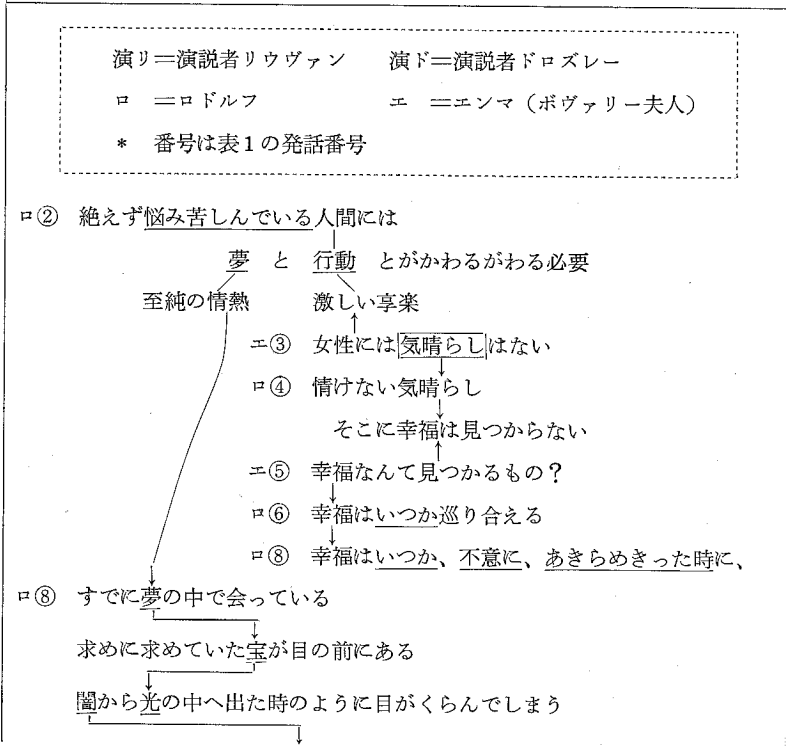 演リ＝演説者リウヴァン　演ド＝演説者ドロズレー
ロ　＝ロドルフ　エ　＝エンマ（ボヴァリー夫人）
＊　番号は表１の発話番号
ロ②　絶えず悩み苦しんでいる人間には
夢　と　行動　とがかわるがわる必要
至純の情熱　激しい享楽
エ③　女性には気晴らしはない
ロ④　情けない気晴らし
そこに幸福は見つからない
エ⑤　幸福なんて見つかるもの？
ロ⑥　幸福はいつか巡り合える
ロ⑧　幸福はいつか、不意に、あきらめきった時に、
ロ⑧　すでに夢の中で会っている
求めに求めていた宝が目の前にある
闇から光の中へ出た時のように目がくらんでしまう